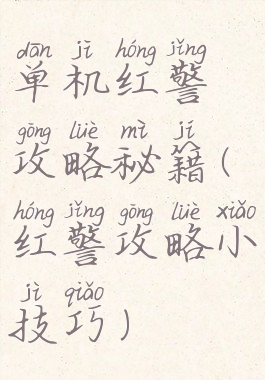 dān jī hóng jǐng
单机红警
gōng lüè mì jí
攻略秘籍(
hóng jǐng gōng lüè xiǎo
红警攻略小
jì qiǎo
技巧)